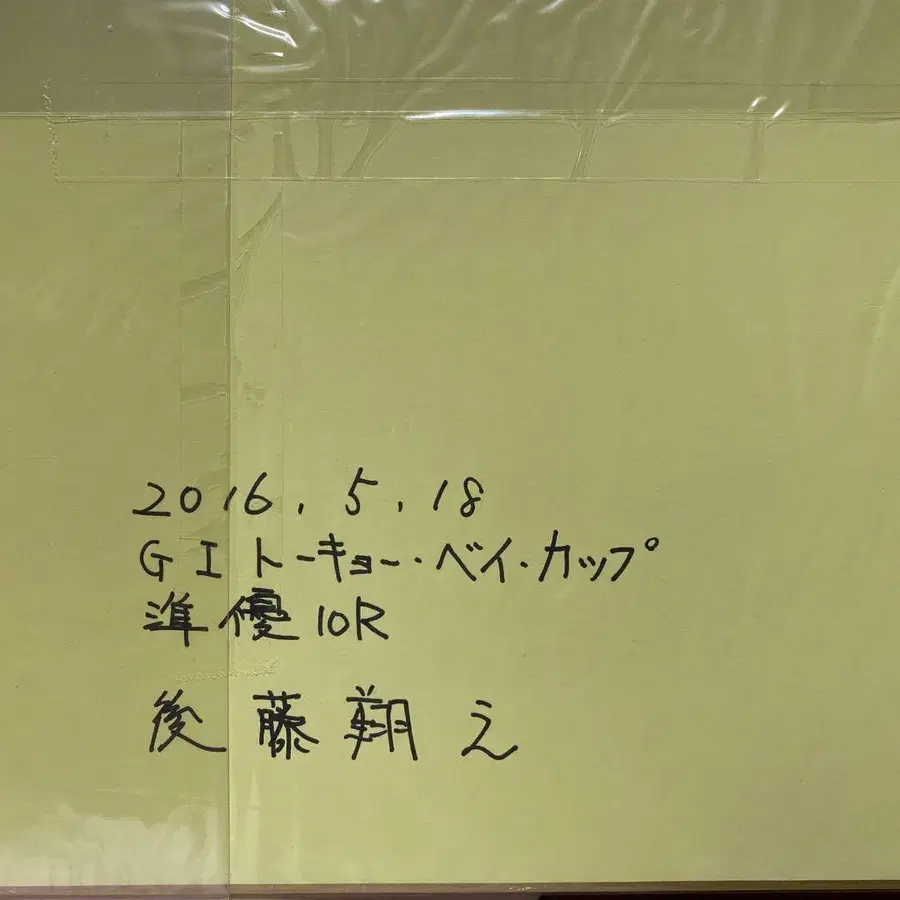 2016.5.18
GIトーキョー・ベイ・カップ
準優10R
後藤翔え